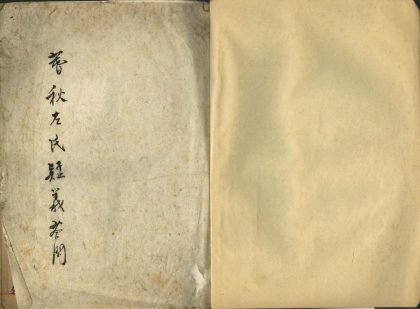 春秋左氏疑義答問